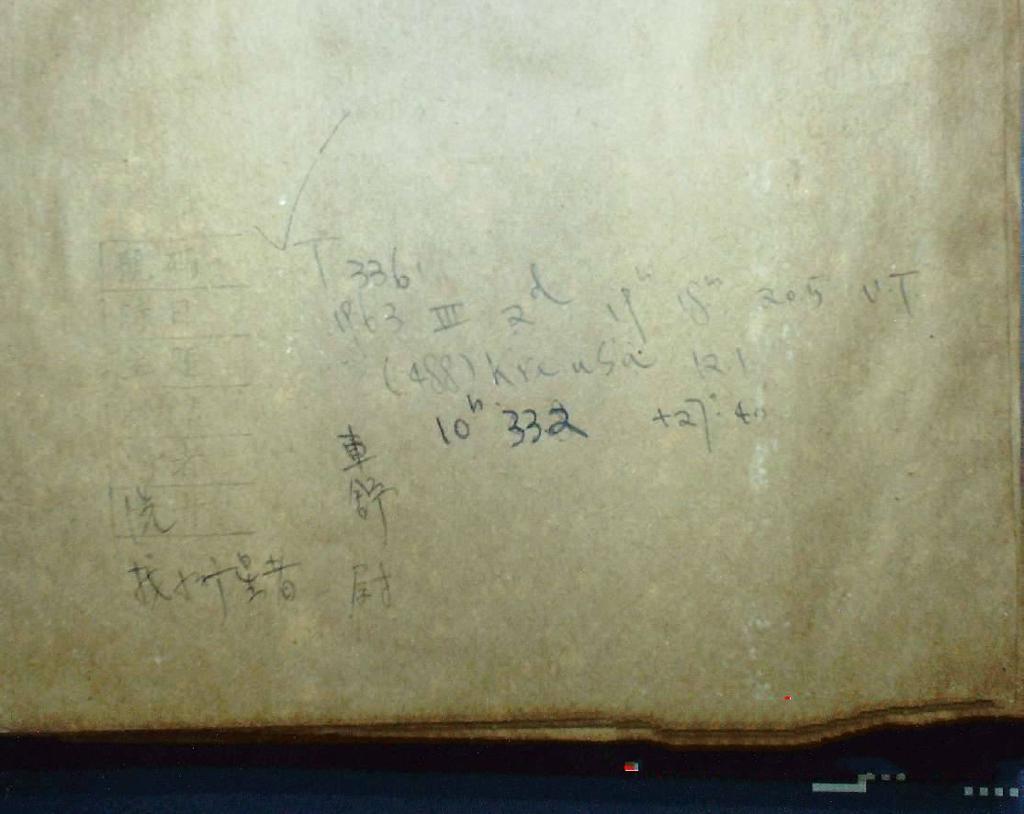 T 336
1963 III 2d 17h 18m 20s.5 UT
(488) Kreusa 12.1
10h 33.2 +27° 40
車
洗 舒
找小行星者 尉